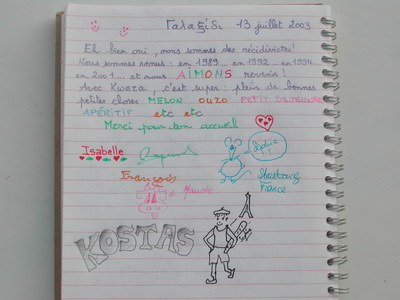 Γαλαξίδι 13 juillet 2003
Eh bien oui, nous sommes des récidivistes!
Nous sommes venus : en 1989... en 1992... en 1994...
en 2001... et nous AIMONS revenir!
Avec Kwsta, c'est super : plein de bonnes
petites choses MELON OUZO PETIT DEJEUNER
APÉRITIF etc etc
Merci pour ton accueil
Isabelle
Sophie!
François
Maude
Strasbourg
France
KOSTAS